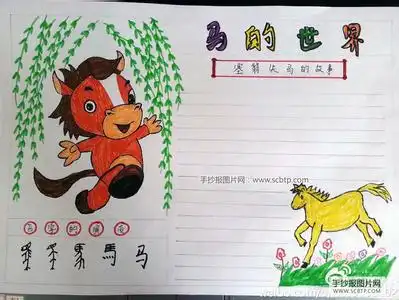 马的世界
塞翁失马的故事
手抄报图片网:www.scbtp.com
马字的演变
馬 马
手抄报图片网
www.SCBTP.com